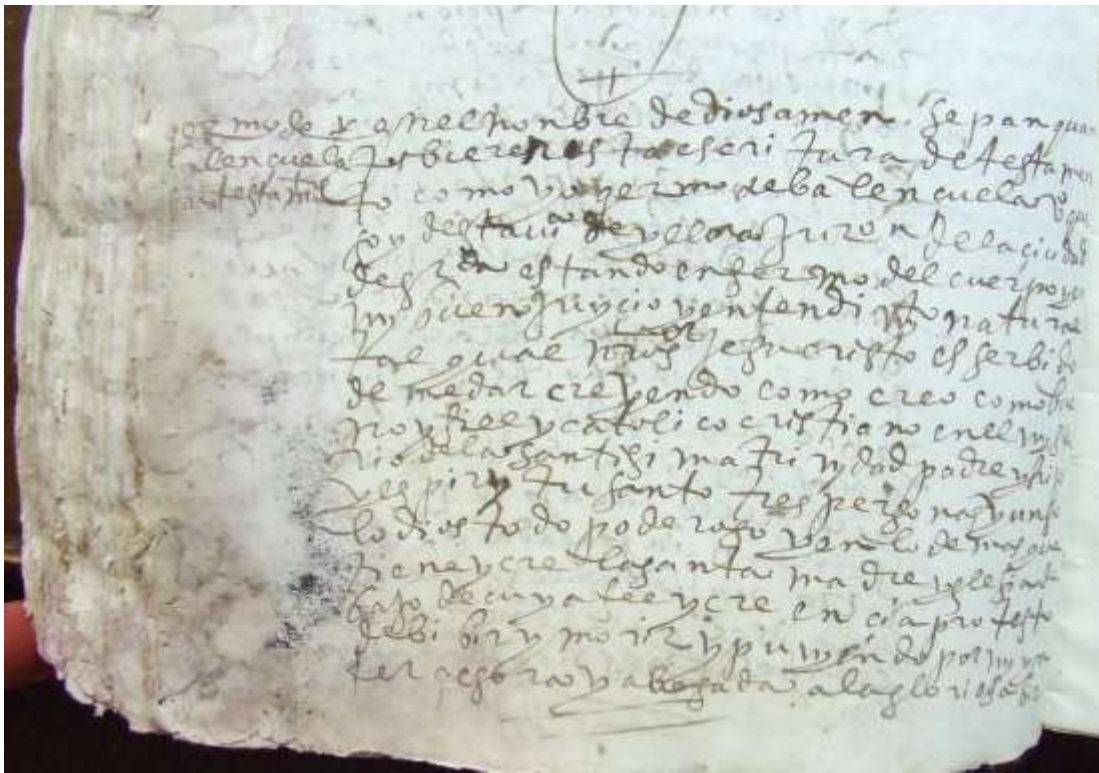 en el nonbre de dios amen. sepan quan
tos bieren esta escritura de testamen
to como yo germo de balençuela
soy desta vi de yllora juron de la ciudad
de grda estando enfermo del cuerpo y en
my buen juycio y entendimyto natural
tal qual nro sor jesucristo es serbido
de me dar creyendo como creo como bue
no y fiel y catolico cristiano en el myste
rio de la santisima trinydad padre y hijo
y espiritu santo tres personas y un so
lo dios todo poderoso y en lo demas que
tiene y cre la santa madre yglesia de
bajo de cuya fee y creencia protesto
de bibir y morir y punyendo por my yn
terçesora y abogada a la gloriosa bir